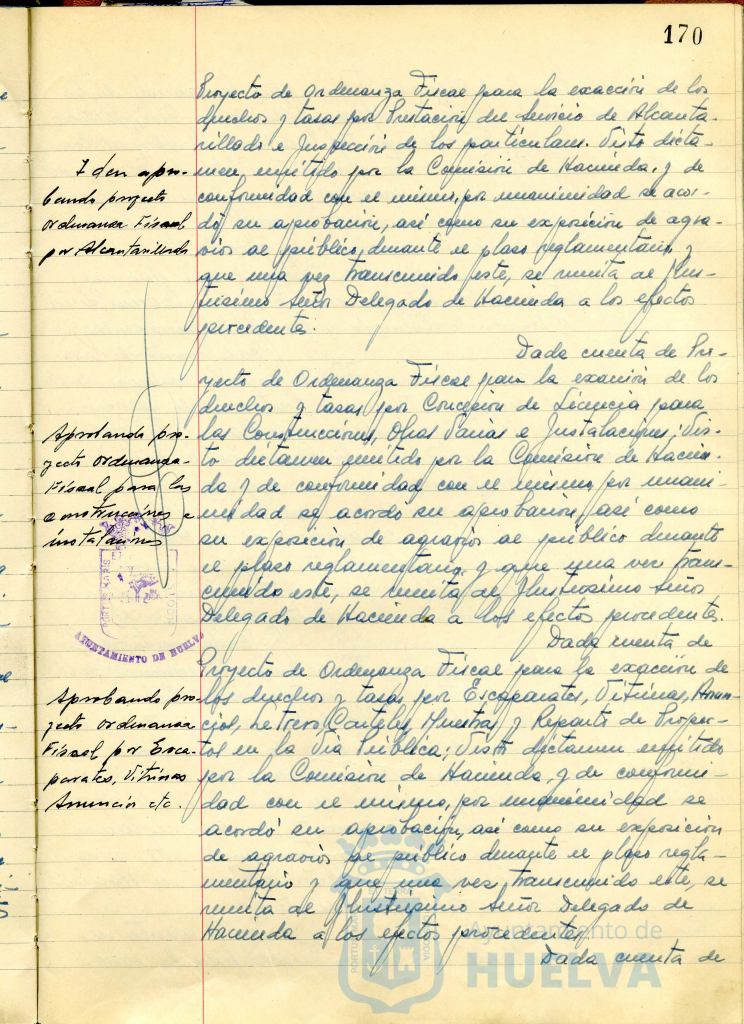 170
Proyecto de Ordenanza Fiscal para la exacción de los
derechos y tasas por Prestación del Servicio de Alcanta-
rillado e Inspección de los particulares. Visto dicta-
men emitido por la Comisión de Hacienda, y de
conformidad con el mismo, por unanimidad se acor-
dó su aprobación, así como su exposición de agra-
vios al público, durante el plazo reglamentario y
que una vez transcurrido éste, se remita al Ilus-
trísimo Señor Delegado de Hacienda a los efectos
procedentes.
Idem apro-
bando proyecto
ordenanza Fiscal
por Alcantarillado
Dada cuenta de Pro-
yecto de Ordenanza Fiscal para la exacción de los
derechos y tasas por Concesión de Licencia para
las Construcciones, Obras Varias e Instalaciones; Vis-
to dictamen emitido por la Comisión de Hacien-
da y de conformidad con el mismo, por unani-
midad se acordó su aprobación, así como
su exposición de agravios al público durante
el plazo reglamentario, y que una vez trans-
currido éste, se remita al Ilustrísimo Señor
Delegado de Hacienda a los efectos procedentes.
Aprobando pro-
yecto ordenanza
Fiscal para las
construcciones e
instalaciones
AYUNTAMIENTO DE HUELVA
Dada cuenta de
Proyecto de Ordenanza Fiscal para la exacción de
los derechos y tasas por Escaparates, Vitrinas, Anun-
cios, Letreros, Carteles, Muestras y Reparto de Prospec-
tos en la Vía Pública; Visto dictamen emitido
por la Comisión de Hacienda, y de conformi-
dad con el mismo, por unanimidad se
acordó su aprobación, así como su exposición
de agravios al público durante el plazo regla-
mentario y que una vez transcurrido éste, se
remita al Ilustrísimo Señor Delegado de
Hacienda a los efectos procedentes.
Aprobando pro-
yecto ordenanza
Fiscal por Esca-
parates, Vitrinas
Anuncios etc.
Dada cuenta de
Ayuntamiento de
HUELVA